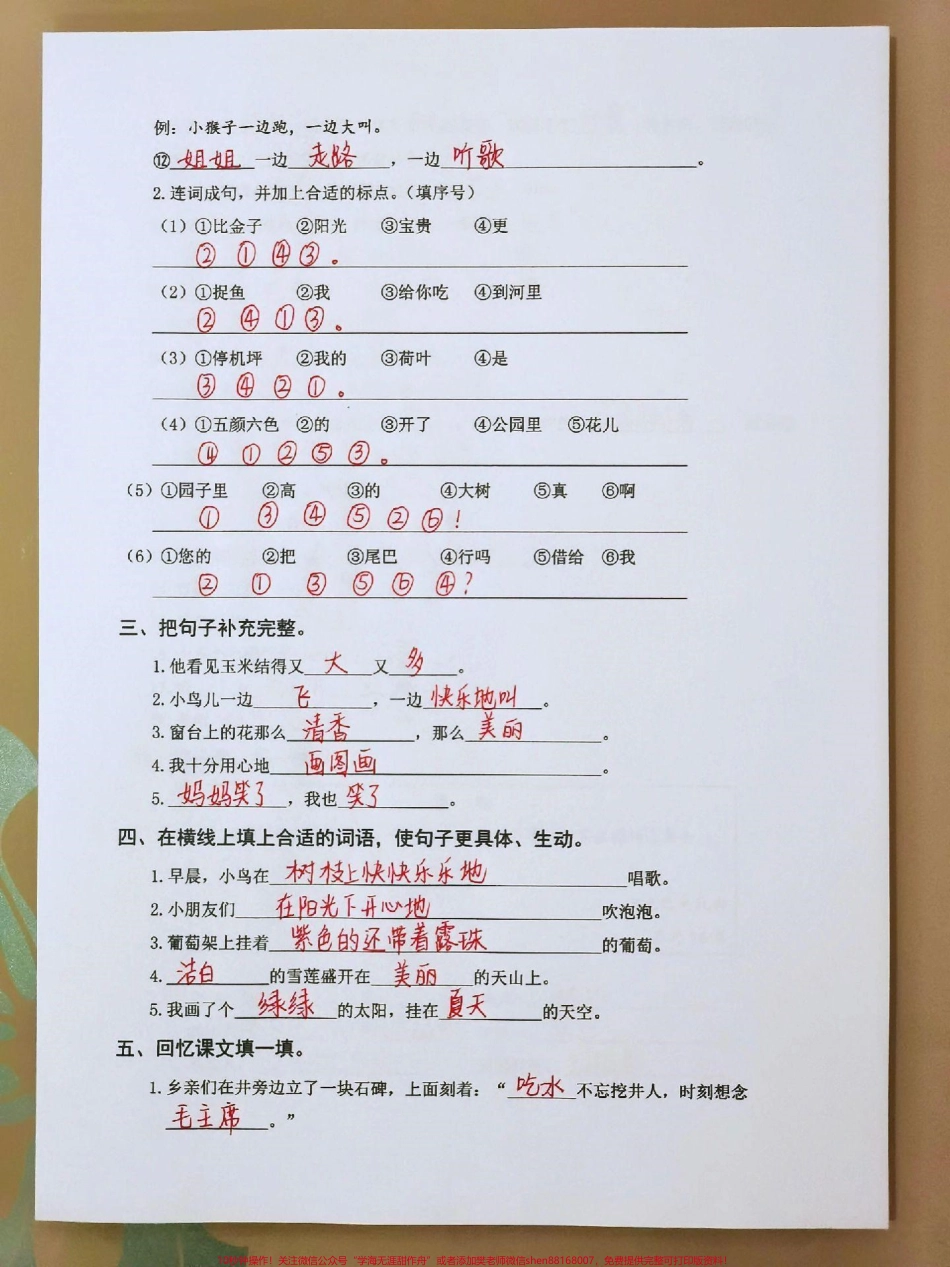 例：小猴子一边跑，一边大叫。
⑫姐姐一边走路，一边听歌。
2.连词成句，并加上合适的标点。（填序号）
（1）①比金子 ②阳光 ③宝贵 ④更
②①④③。
（2）①捉鱼 ②我 ③给你吃 ④到河里
②④①③。
（3）①停机坪 ②我的 ③荷叶 ④是
③④②①。
（4）①五颜六色 ②的 ③开了 ④公园里 ⑤花儿
④①②⑤③。
（5）①园子里 ②高 ③的 ④大树 ⑤真 ⑥啊
①③④⑤②⑥！
（6）①您的 ②把 ③尾巴 ④行吗 ⑤借给 ⑥我
②①③⑤⑥④？
三、把句子补充完整。
1.他看见玉米结得又大又多。
2.小鸟儿一边飞，一边快乐地叫。
3.窗台上的花那么清香，那么美丽。
4.我十分用心地画图画。
5.妈妈笑了，我也笑了。
四、在横线上填上合适的词语，使句子更具体、生动。
1.早晨，小鸟在树枝上快快乐乐地唱歌。
2.小朋友们在阳光下开心地吹泡泡。
3.葡萄架上挂着紫色的还带着露珠的葡萄。
4.洁白的雪莲盛开在美丽的天山上。
5.我画了个绿绿的太阳，挂在夏天的天空。
五、回忆课文填一填。
1.乡亲们在井旁边立了一块石碑，上面刻着：“吃水不忘挖井人，时刻想念
毛主席。”
操作！关注微信公众号“学海无涯甜作舟”或者添加樊老师微信shen88168007，免费提供完整可打印版资料！